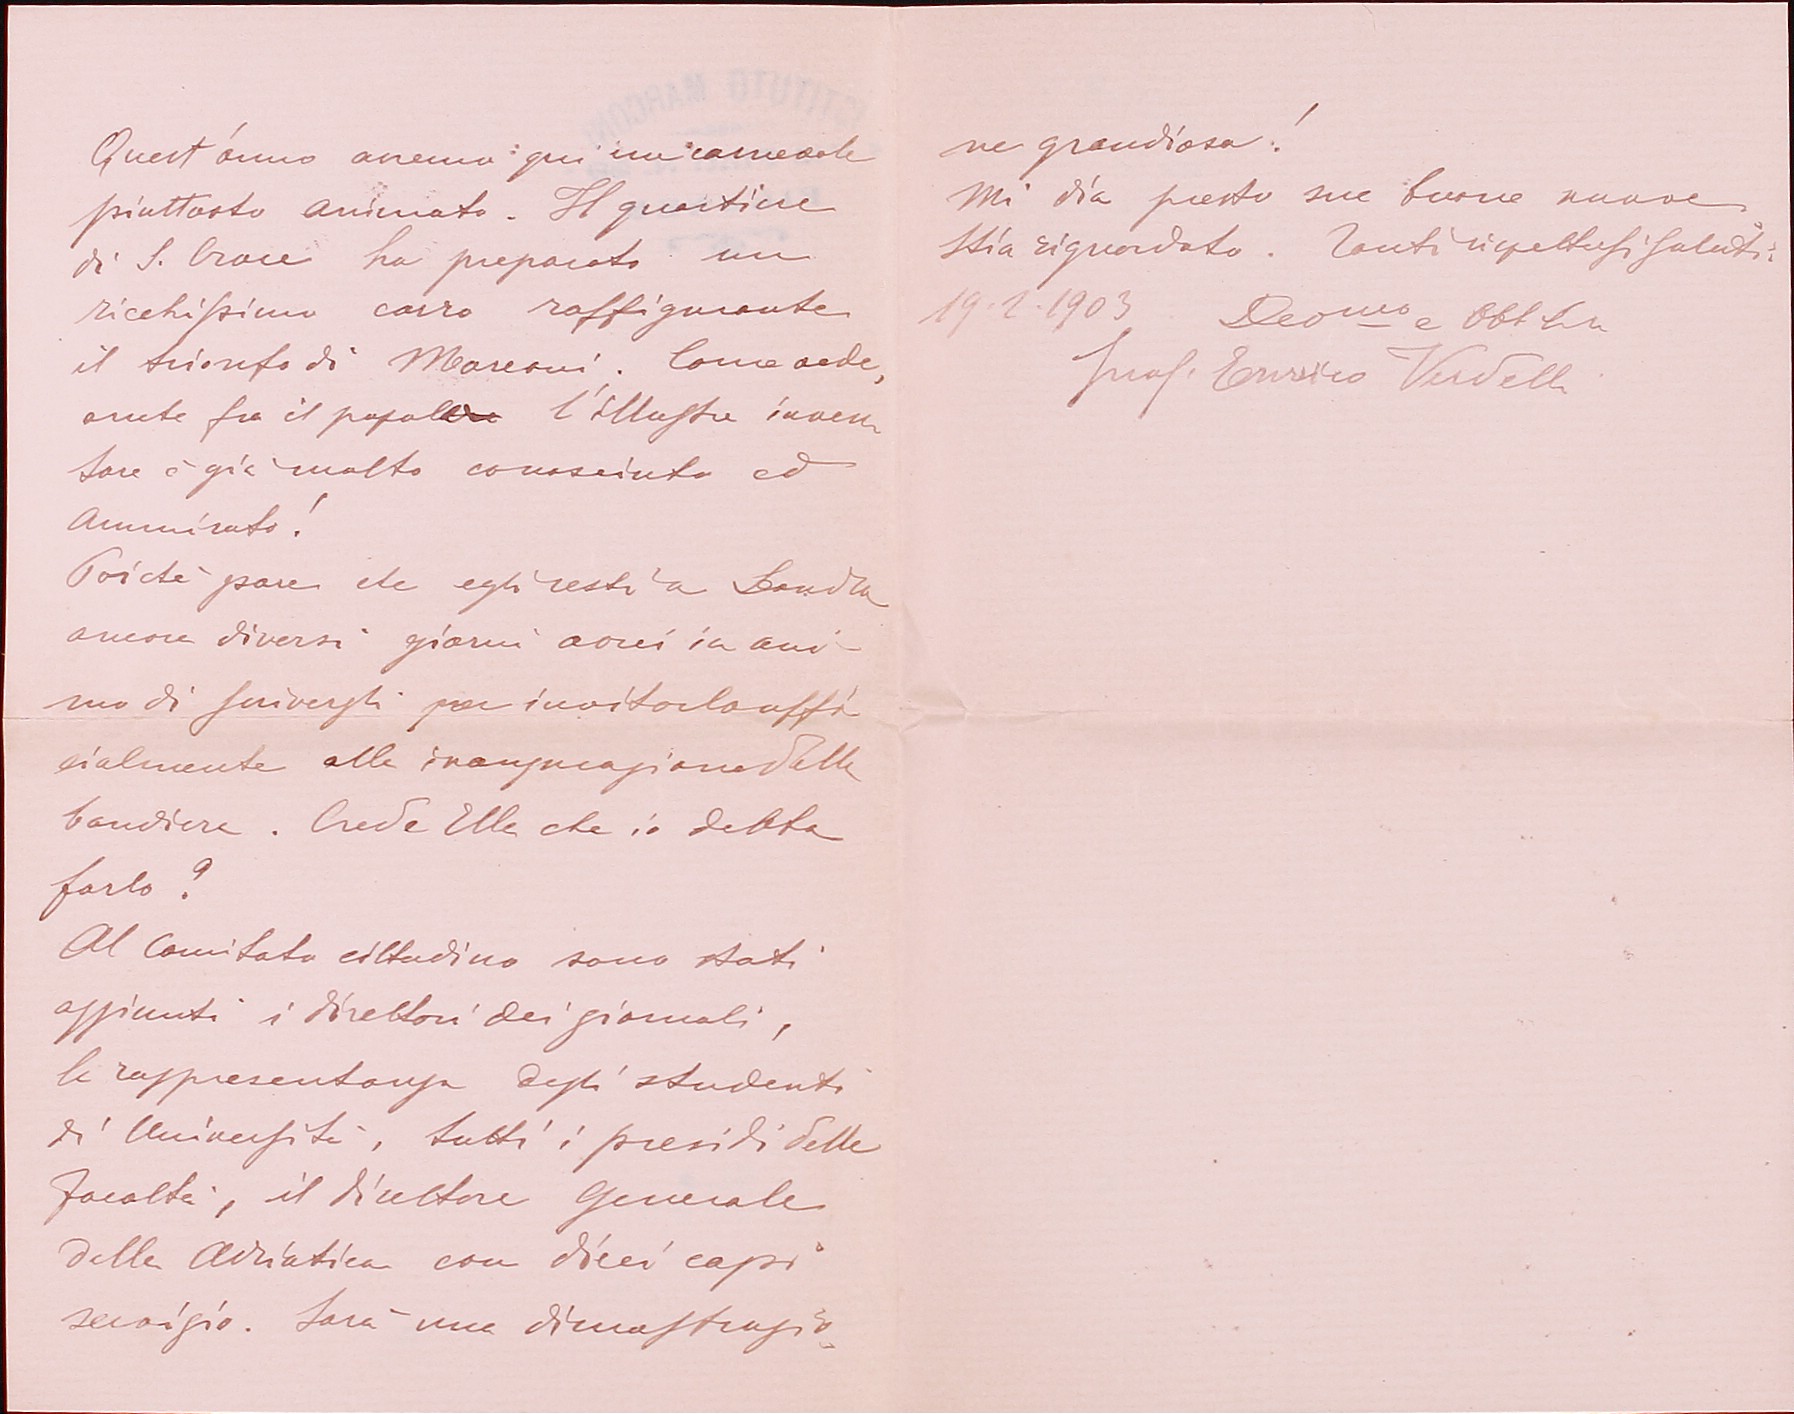 Quest'anno avremo qui un carnevale
piuttosto animato. Il quartiere
di S. Croce ha preparato un
ricchissimo carro raffigurante
il trionfo di Marconi. Come vede,
anche fra il popolo l'illustre inven
tore è già molto conosciuto ed
ammirato!
Poichè pare che egli resti a Londra
ancora diversi giorni avrei in ani-
mo di scrivergli per invitarlo uffi
cialmente alla inaugurazione della
bandiera. Crede Ella che io debba
farlo?
Al Comitato cittadino sono stati
aggiunti i direttori dei giornali,
la rappresentanza degli studenti
di Università, tutti i presidi delle
Facoltà, il direttore Generale
della Adriatica con dieci capi
servizio. Sarà una dimostrazio-
ne grandiosa!
Mi dia presto sue buone nuove
Stia riguardato. Tanti rispettosi saluti
19-2-1903 Devmo e Obbl
Prof. Enrico Verdelli
ISTITUTO MARCONI